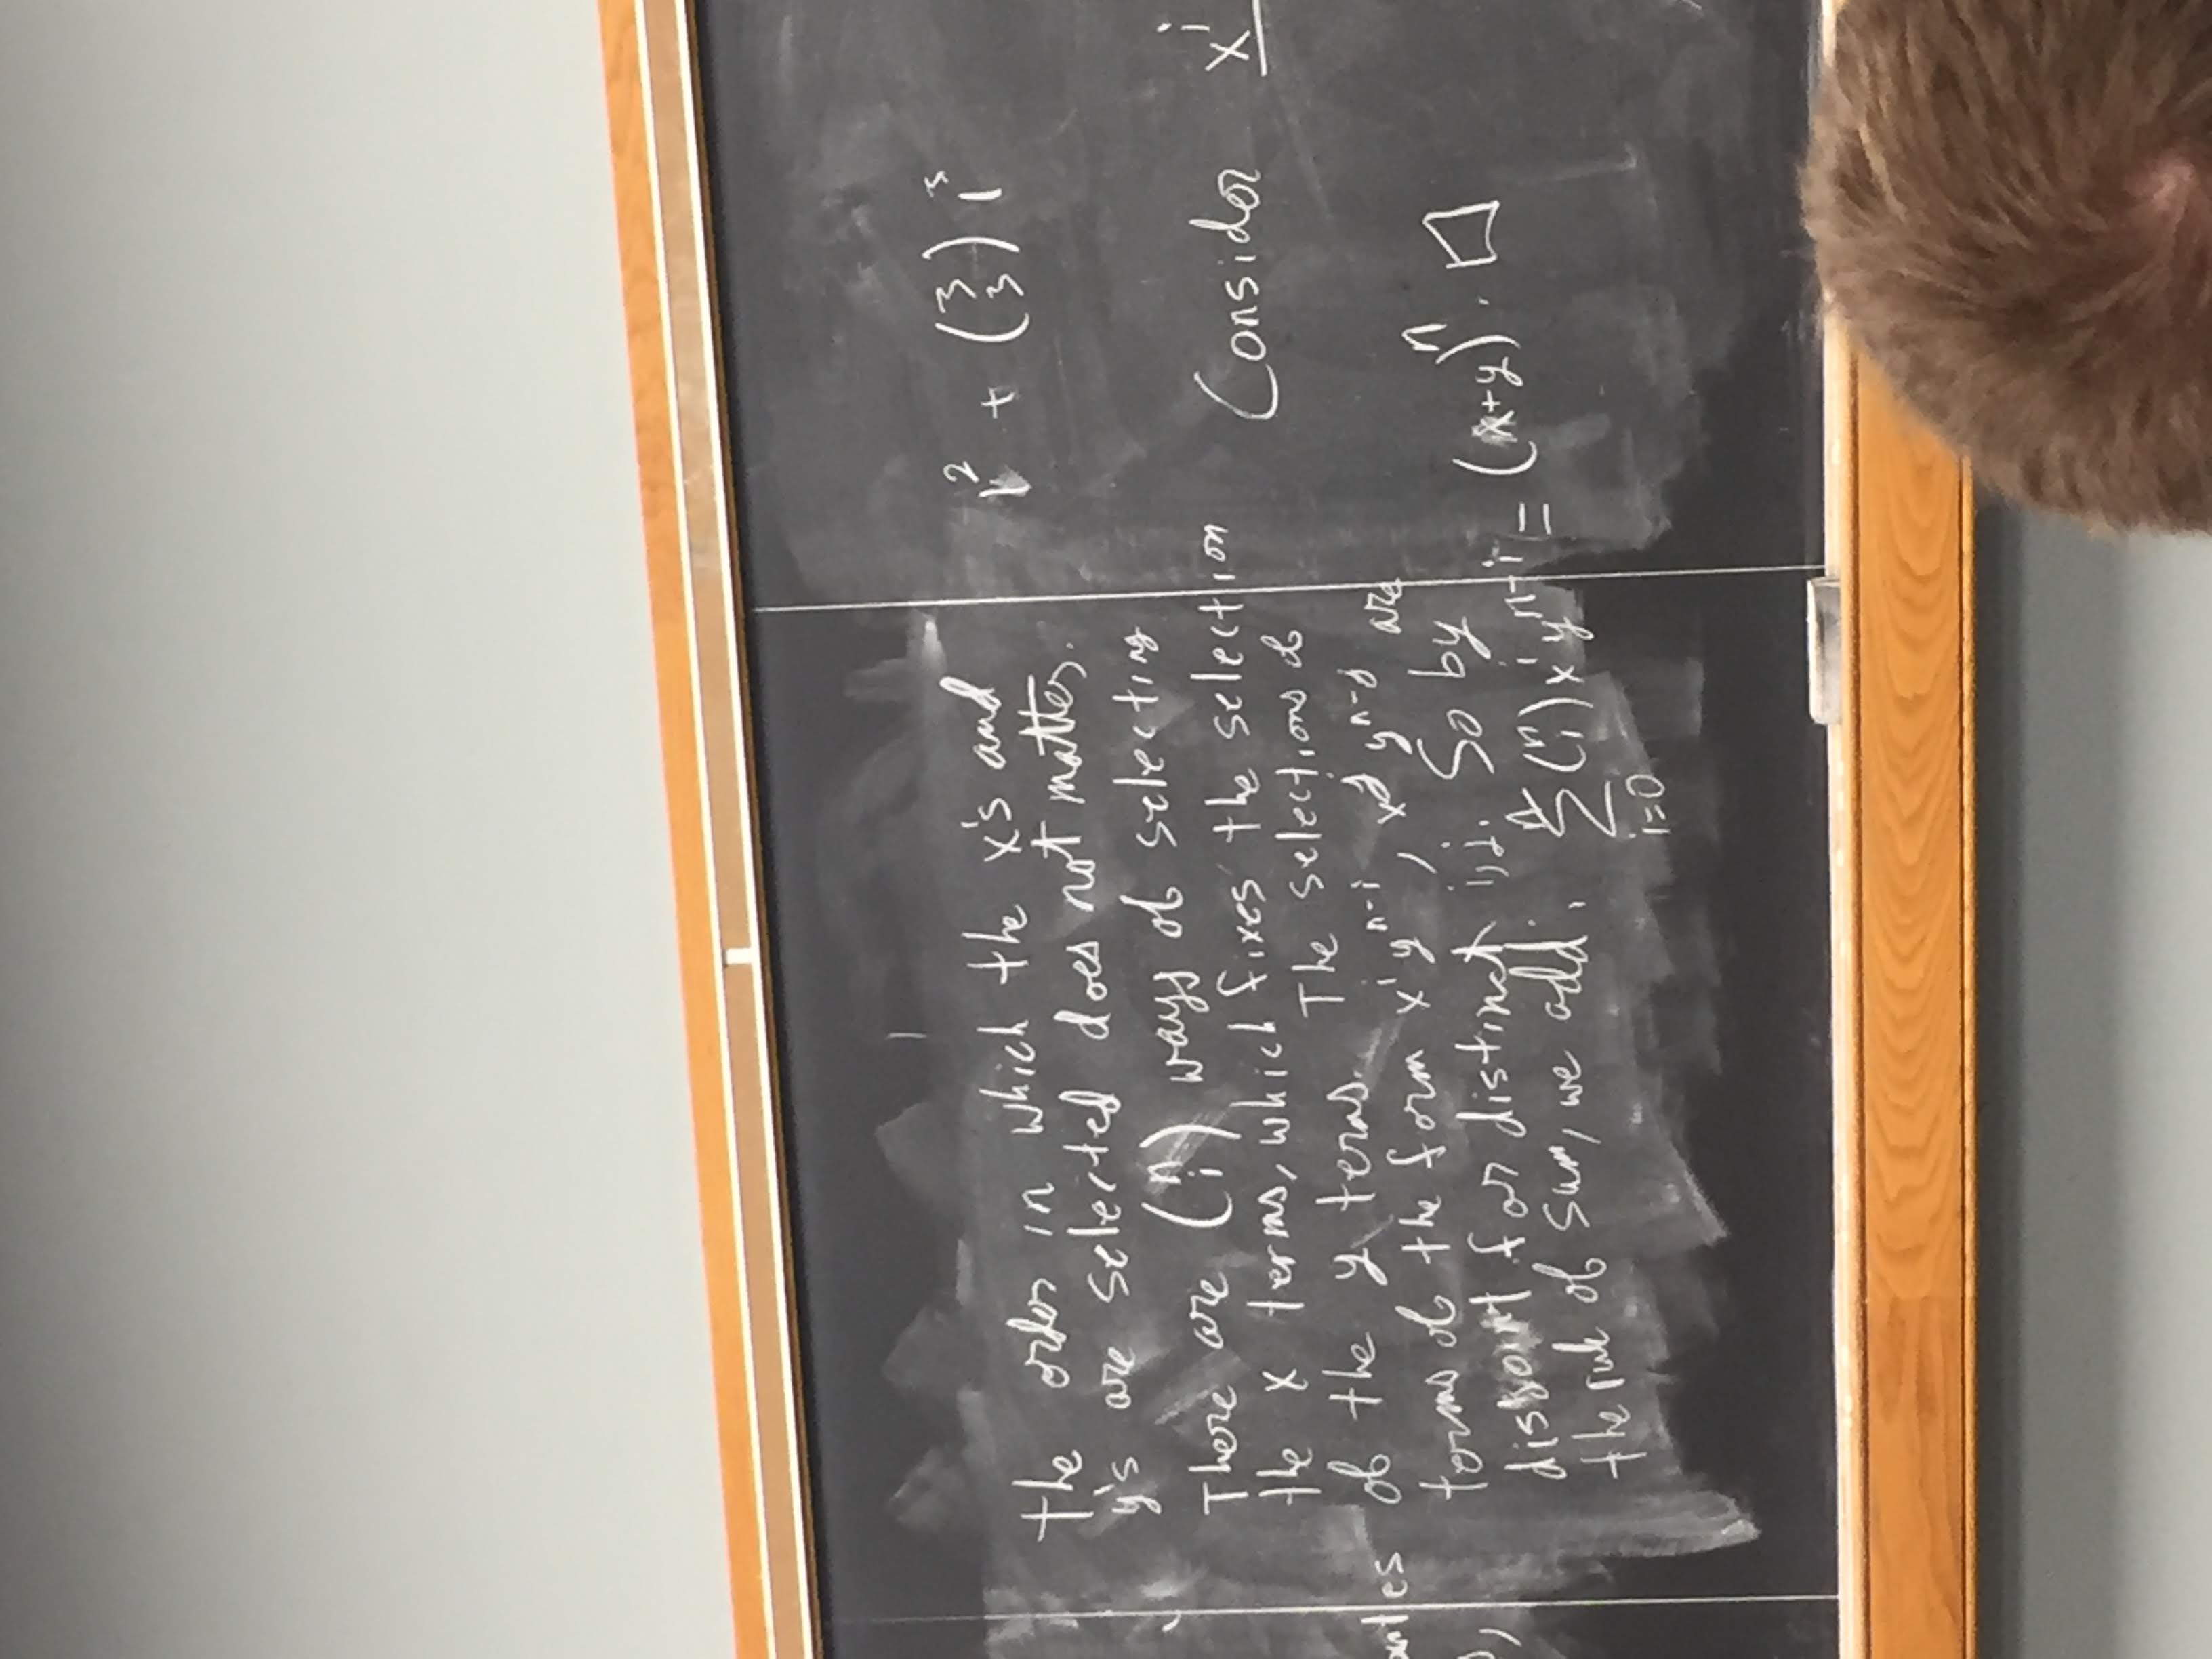 the order in which the x's and
y's are selected does not matter.
There are (n i) ways of selecting
the x terms, which fixes the selection
of the y terms. The selections of
terms of the form xⁱyⁿ⁻ⁱ, xʲyⁿ⁻ʲ are
disjoint for distinct i,j. So by
the rule of sum, we add. ∑ᵢ₌₀ⁿ (n i) xⁱyⁿ⁻ⁱ = (x+y)ⁿ. □
1² + (3 3) 1³
Consider xⁱ